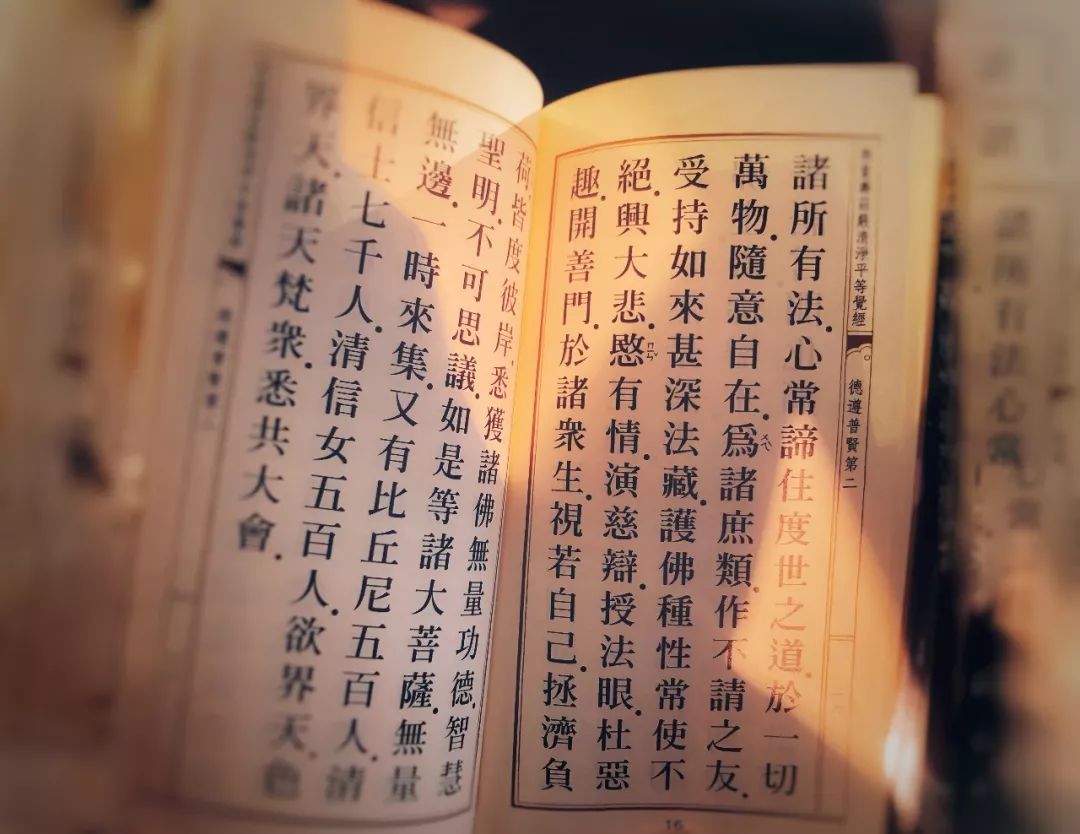 無量壽莊嚴清淨平等覺經 德遵普賢第二
諸所有法.心常諦住度世之道.於一切
萬物.隨意自在.爲諸庶類.作不請之友.
受持如來甚深法藏.護佛種性常使不
絕.興大悲.愍有情.演慈辯.授法眼.杜惡
趣.開善門.於諸衆生.視若自己.拯濟負
16
荷.皆度彼岸.悉獲諸佛無量功德.智慧
聖明.不可思議.如是等諸大菩薩.無量
無邊.一時來集.又有比丘尼五百人.清
信士七千人.清信女五百人.欲界天.色
界天.諸天梵衆.悉共大會.